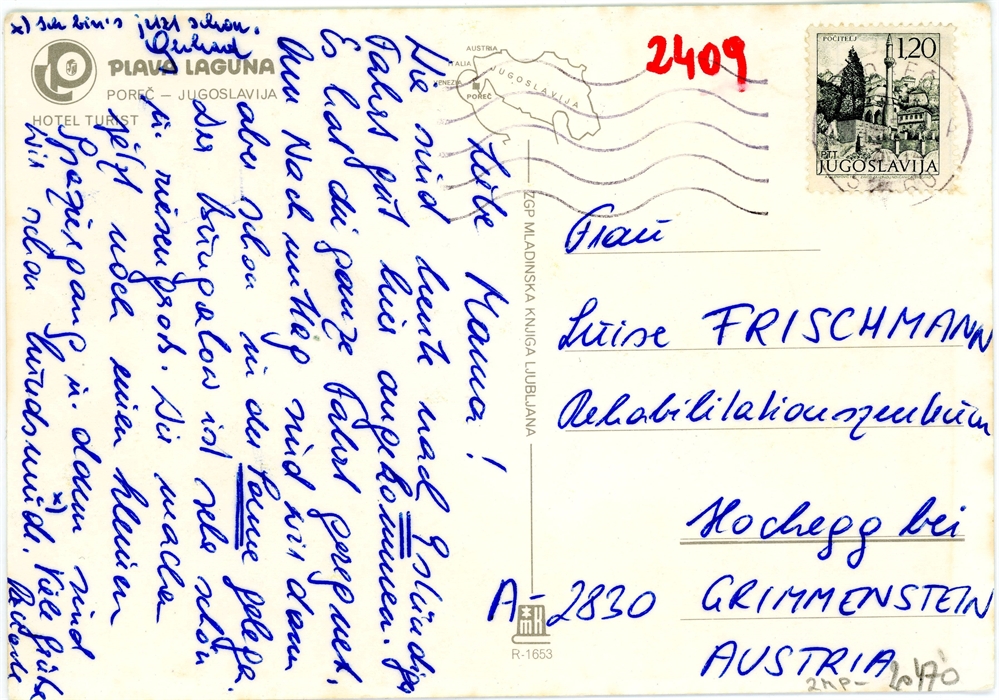 x) Ich bin's jetzt schon.
Gerhard
PLAVA LAGUNA
POREČ – JUGOSLAVIJA
HOTEL TURIST
AUSTRIA
ITALIA
VENEZIA
POREČ
JUGOSLAVIJA
2409
POČITELJ
1,20
PTT
JUGOSLAVIJA
Liebe Mama!
Wir sind heute nach stündiger
Fahrt gut hier angekommen.
Es hat die ganze Fahrt geregnet,
am Nachmittag sind wir dann
aber schon in der Sonne geleg.
Der Bungalow ist sehr schön
u. riesengroß. Wir machen
jetzt noch einen kleinen
Spaziergang u. dann sind
wir schon hundsmüde. x) Viele Grüße
ZGP MLADINSKA KNJIGA LJUBLJANA
Frau
Luise FRISCHMANN
Rehabilitationszentrum
Hochegg bei
A-2830 GRIMMENSTEIN
AUSTRIA
MK
R-1653